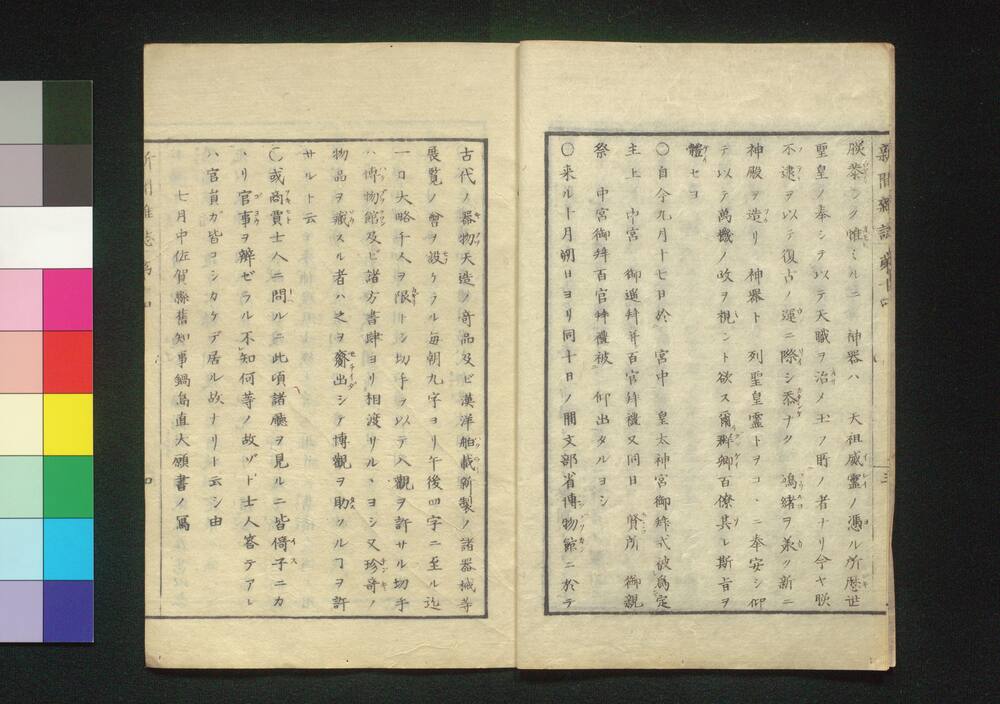 朕恭シク惟ミルニ 神器ハ 天祖威靈ノ憑ル所歴世
聖皇ノ奉シテ以テ天職ヲ治メ玉フ所ノ者ナリ今ヤ朕
不逮ヲ以テ復古ノ運ニ際シ忝ナク 鴻緒ヲ承ク新ニ
神殿ヲ造リ 神器ト 列聖皇靈トヲコヽニ奉安シ仰
テ以テ萬機ノ政ヲ視ント欲ス爾群卿百僚其レ斯旨ヲ
體セヨ
〇自今九月十七日於 宮中 皇太神宮御祭式被爲定
主上 中宮 御遥拜并百官拜禮又同日 賢所 御親
祭 中宮御拜百官拜禮被 仰出タルヨシ
〇来ル十月朔日ヨリ同十日ノ間文部省博物館ニ於テ
古代ノ器物天造ノ奇品及ビ漢洋舶載新製ノ諸器械等
展覧ノ會ヲ設ケラル毎朝九字ヨリ午後四字ニ至ル迄
一日大略千人ヲ限トシ切手ヲ以テ入觀ヲ許サル切手
ハ博物館及ビ諸方書肆ヨリ相渡サルヽヨシ又珍奇ノ
物品ヲ藏スル者ハ之ヲ齎出シテ博觀ヲ助クルヿヲ許
サルト云
〇或商賈士人ニ問ルニ此頃諸廳ヲ見ルニ皆倚子ニカ
ヽリ官事ヲ辨ゼラル不知何等ノ故ゾト士人答テアレ
ハ官員ガ皆コシカケデ居ル故ナリト云シ由
七月中佐賀縣舊知事鍋島直大願書ノ寫